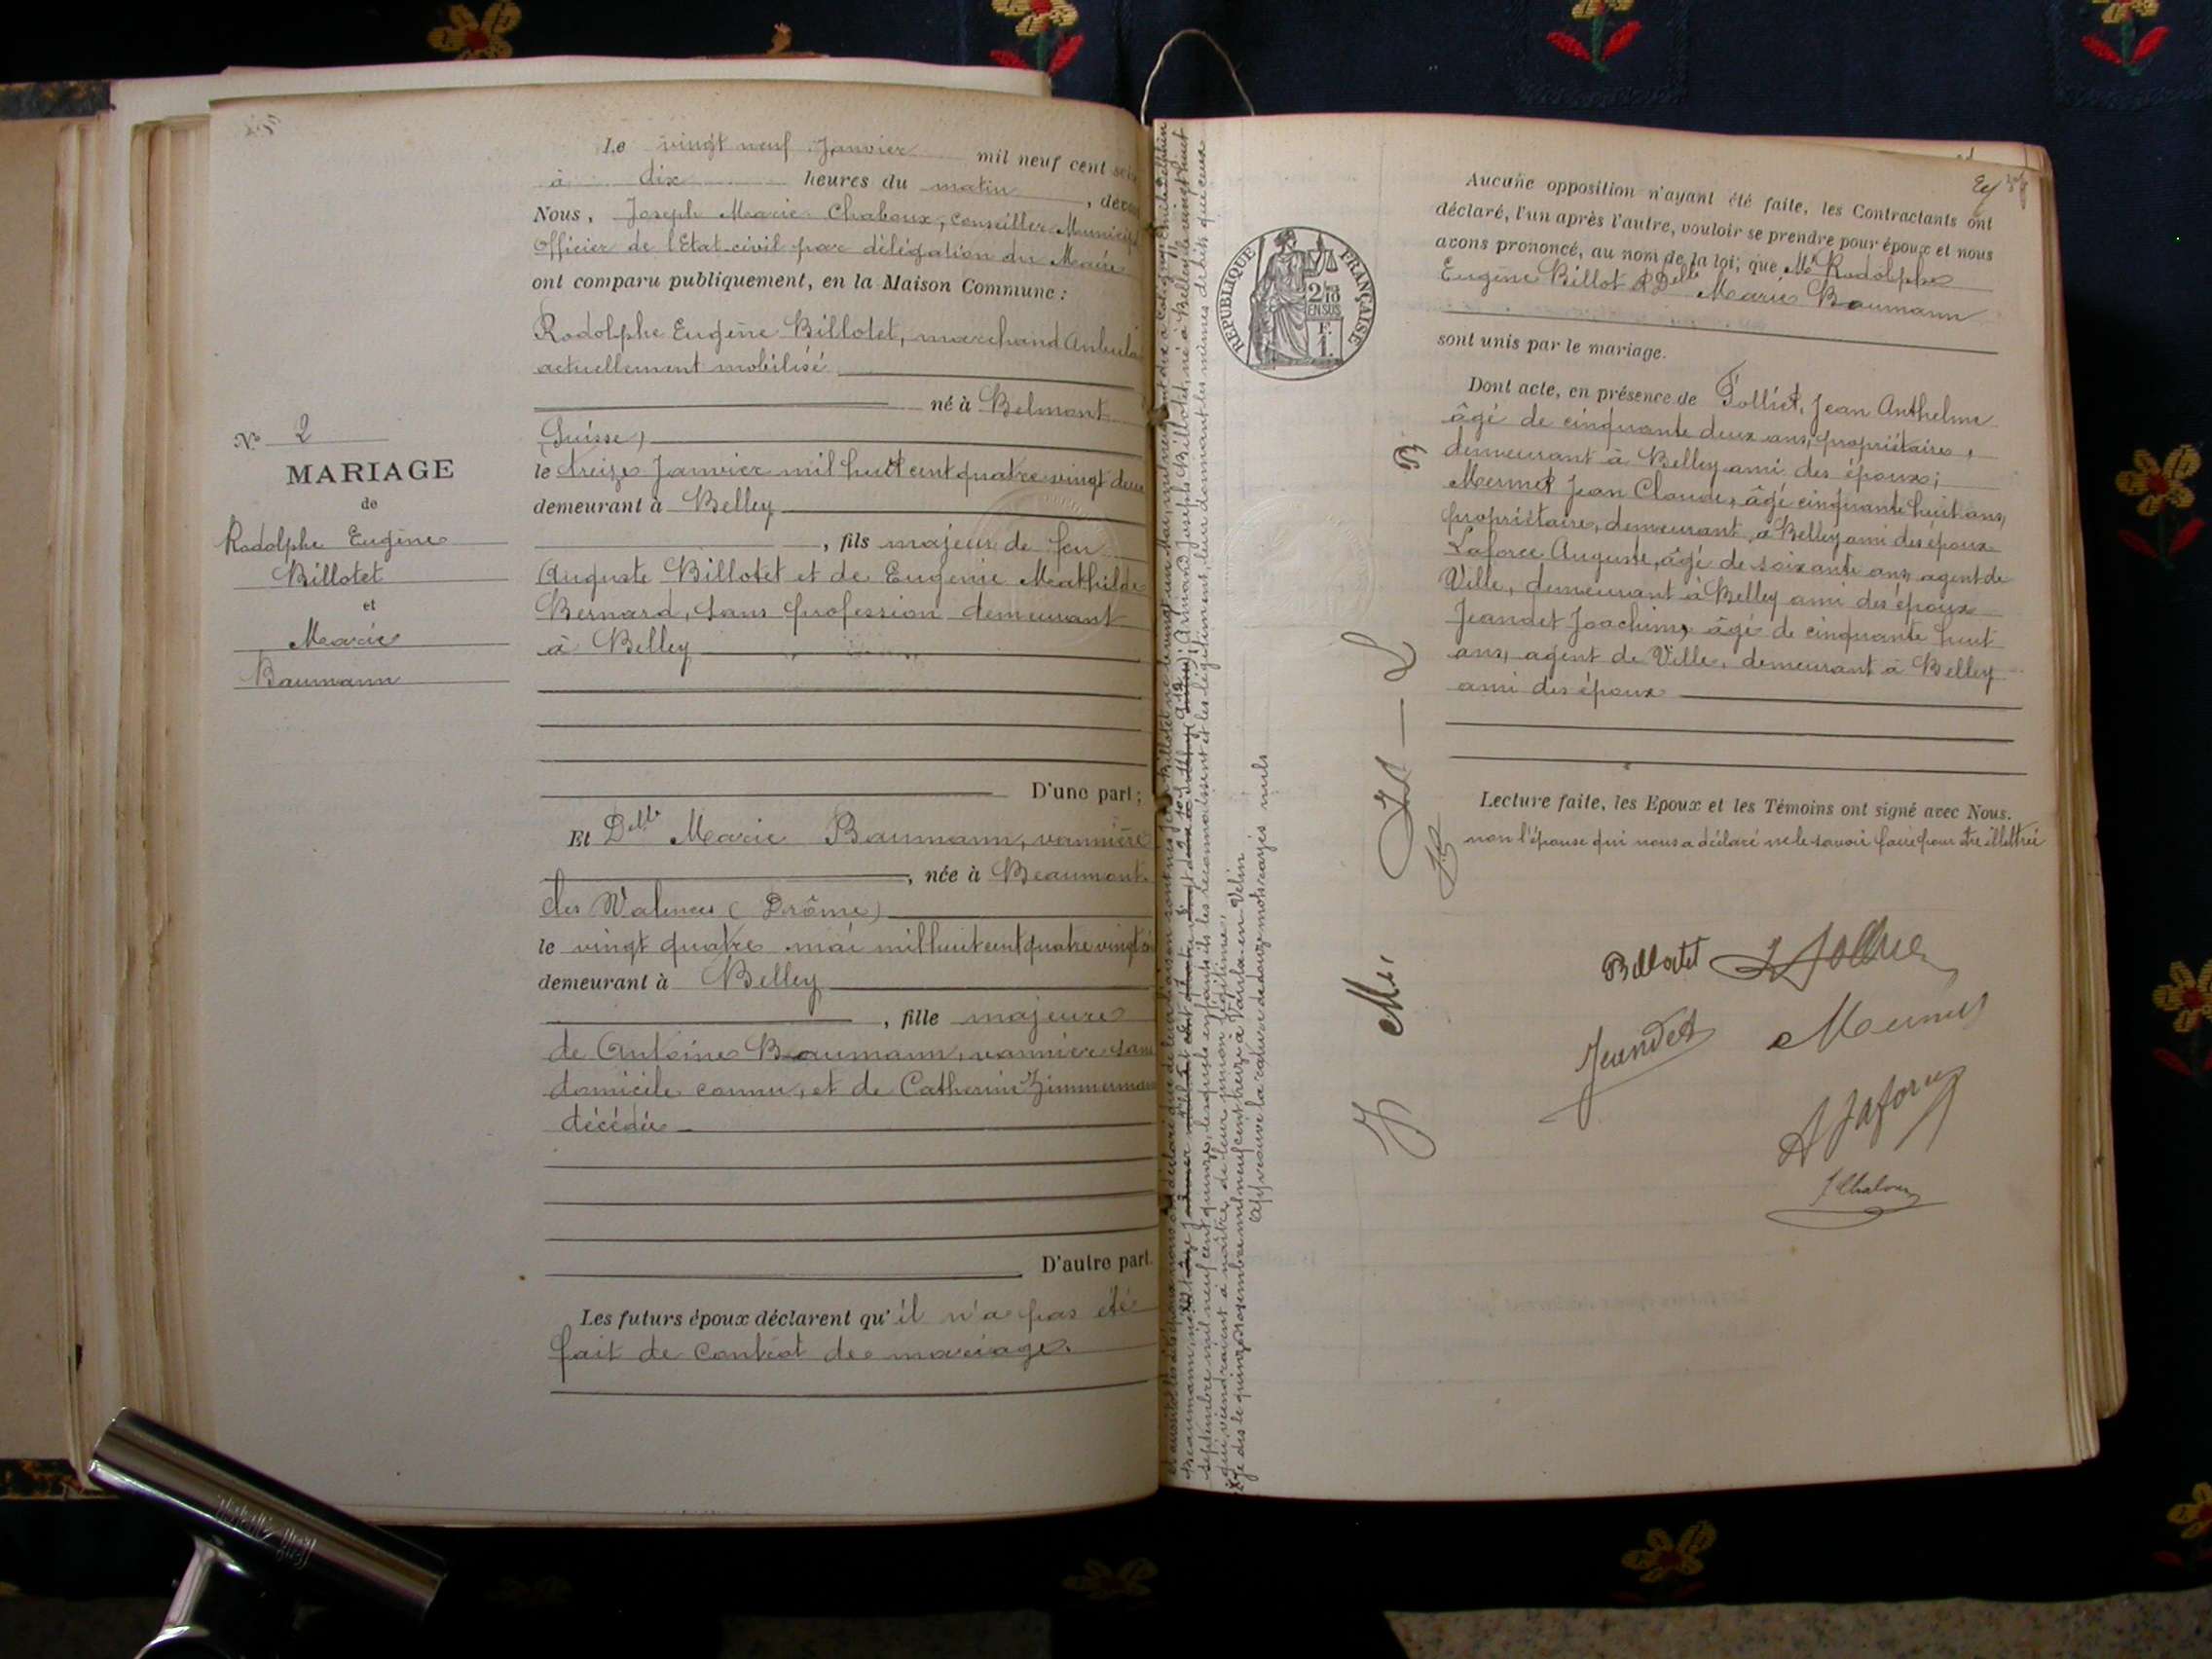 Le vingt neuf Janvier mil neuf cent
à dix heures du matin,
Nous, Joseph Marie Chaboux, conseiller Municipal
Officier de l'Etat-civil par délégation du Maire
ont comparu publiquement, en la Maison Commune :
Rodolphe Eugène Billotet, marchand
actuellement mobilisé
né à Belmont
(Suisse)
le treize Janvier mil huit cent quatre vingt deux
demeurant à Belley
, fils majeur de feu
Auguste Billotet et de Eugénie Mathilde
Bernard, sans profession demeurant
à Belley
D'une part ;
Et Delle Marie Baumann, vannière
, née à Beaumont
les Valences (Drôme)
le vingt quatre mai mil huit cent quatre vingt
demeurant à Belley
, fille majeure
de Antoine Baumann, vannier sans
domicile connu, et de Catherine Zimmermann
décédée
D'autre part.
Les futurs époux déclarent qu'il n'a pas été
fait de contrat de mariage.
N° 2
MARIAGE
de
Rodolphe Eugène
Billotet
et
Marie
Baumann
septembre mil neuf cent quinze, lesquels enfants ils reconnaissent et les légitiment, leur donnant les mêmes droits que ceux
qui viendraient à naître de leur union légitime.
Je dis le quinze novembre mil neuf cent treize à Vaulx-en-Velin
Approuvé la rature de douze mots rayés nuls
REPUBLIQUE FRANÇAISE
2/10
EN SUS
F.
1.
Aucune opposition n'ayant été faite, les Contractants ont
déclaré, l'un après l'autre, vouloir se prendre pour époux et nous
avons prononcé, au nom de la loi, que Mr Rodolphe
Eugène Billot & Delle Marie Baumann
sont unis par le mariage.
Dont acte, en présence de Tolliet, Jean Anthelme
âgé de cinquante deux ans, propriétaire,
demeurant à Belley ami des époux ;
Mermet Jean Claude, âgé cinquante huit ans,
propriétaire, demeurant à Belley ami des époux
Laforce Auguste, âgé de soixante ans, agent de
Ville, demeurant à Belley ami des époux
Jeandet Joachim, âgé de cinquante huit
ans, agent de Ville, demeurant à Belley
ami des époux
Lecture faite, les Epoux et les Témoins ont signé avec Nous.
non l'épouse qui nous a déclaré ne le savoir faire pour être illettrée
Billotet
Jeandet
Mermet
A Laforce
J Chaboux